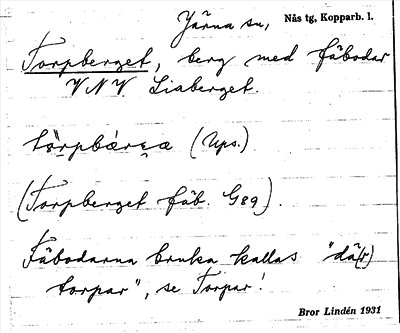 Järna sn, Nås tg, Kopparb. l.
Torpberget, berg med fäbodar
VNV Liaberget.
(Ups.)
(Torpberget fäb. G89).
Fäbodarna bruka kallas "dä(r)
torpar", se Torpar!
Bror Lindén 1931